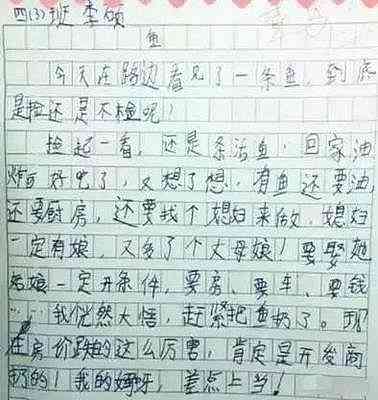 四(3)班 李硕
鱼
今天在路边看见了一条鱼,到底
是捡还是不捡呢!
捡起一看,还是条活鱼,回家油
炸可好吃了,又想了想,有鱼还要油,
还要厨房,还要找个媳妇来做,媳妇
一定有娘,又多了个丈母娘!要娶她
老娘一定开条件,要房、要车、要钱
……我恍然大悟,赶紧把鱼扔了。现
在房价跌的这么厉害,肯定是开发商
扔的!我的妈呀,差点上当!